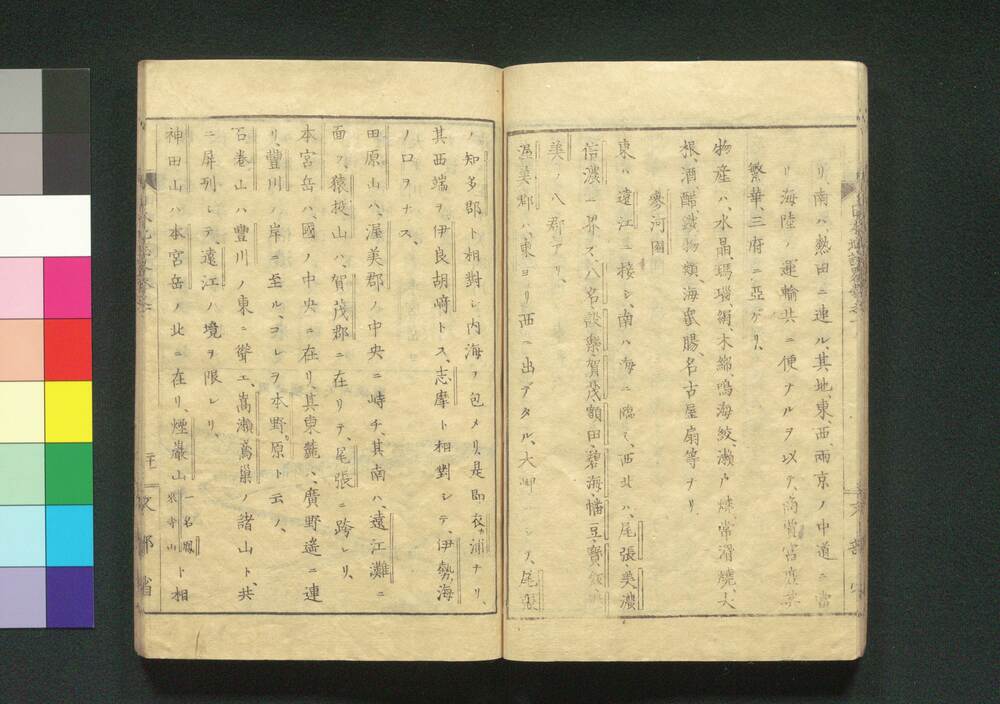 リ、南ハ、熱田ニ連ル、其地、東、西、両京ノ中道ニ当
リ海陸ノ運輸共ニ便ナルヲ以テ、商賈富
繁華、三府ニ亞ゲリ、
物産ハ、水晶、瑪瑙、絹、木綿、鳴海絞、瀬戸焼、常滑焼、大
根、酒、醋、鉄物類、海鼠腸、名古屋扇等ナリ、
參河國
東ハ遠江ニ接シ、南ハ海ニ臨ミ、西北ハ、尾張、美濃
信濃ニ界ス、八名、設樂、賀茂、額田、碧海、幡豆、寳飯、渥
美ノ八郡アリ、
渥美郡ハ、東ヨリ西ヘ出デタル、大岬ニシテ、尾張
ノ知多郡ト相對シ内海ヲ包メリ、是即、衣ヶ浦ナリ、
其西端ヲ、伊良胡﨑トス、志摩ト相對シテ、伊勢海
ノ口ヲナス、
田原山ハ、渥美郡ノ中央ニ峙チ、其南ハ、遠江灘ニ
面ス、猿投山ハ、賀茂郡ニ在リテ、尾張ニ跨レリ、
本宮岳ハ、國ノ中央ニ在リ、其東麓ハ、廣野遙ニ連
リ、豐川ノ岸ニ至ル、コレヲ本野原ト云フ、
石巻山ハ豐川ノ東ニ聳エ、嵩瀬、鳶巢ノ諸山ト、共
ニ屏列シテ、遠江ノ境ヲ限レリ、
神田山ハ本宮岳ノ北ニ在リ、煙巖山一名鳳来寺山ト相
文部省